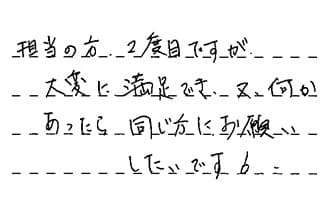 担当の方、2度目ですが、
大変に満足でき、又、何か
あったら同じ方にお願い
したいです